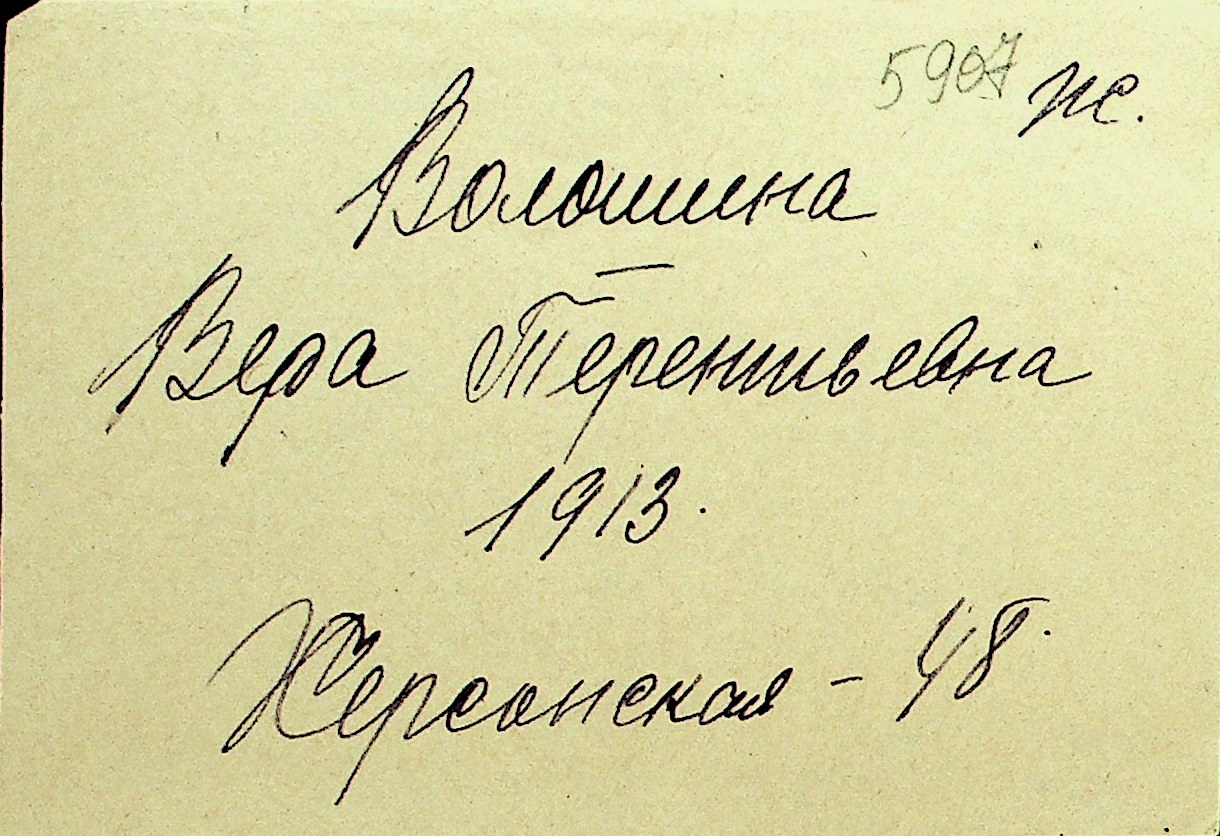 5907 ж.
Волошина
Вера Терентьевна
1913.
Херсонская - 48.